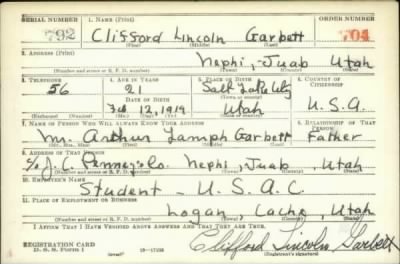 SERIAL NUMBER 1. NAME (Print) ORDER NUMBER
792 Clifford Lincoln Garbett 704
(First) (Middle) (Last)
2. ADDRESS (Print)
Nephi, Juab Utah
(Number and street or R. F. D. number) (Town) (County) (State)
3. TELEPHONE 4. AGE IN YEARS 5. PLACE OF BIRTH 6. COUNTRY OF CITIZENSHIP
56 21 Salt Lake City
DATE OF BIRTH (Town or county)
Feb 12, 1919 Utah U.S.A.
(Exchange) (Number) (Mo.) (Day) (Yr.) (State or country)
7. NAME OF PERSON WHO WILL ALWAYS KNOW YOUR ADDRESS 8. RELATIONSHIP OF THAT PERSON
Mr. Arthur Lamph Garbett Father
(Mr., Mrs., Miss) (First) (Middle) (Last)
9. ADDRESS OF THAT PERSON
c/o J.C. Penney Co. Nephi, Juab, Utah
(Number and street or R. F. D. number) (Town) (County) (State)
10. EMPLOYER'S NAME
Student U.S.A.C.
11. PLACE OF EMPLOYMENT OR BUSINESS
Logan, Cache, Utah
(Number and street or R. F. D. number) (Town) (County) (State)
I AFFIRM THAT I HAVE VERIFIED ABOVE ANSWERS AND THAT THEY ARE TRUE.
REGISTRATION CARD Clifford Lincoln Garbett
D. S. S. Form 1 (Registrant's signature)